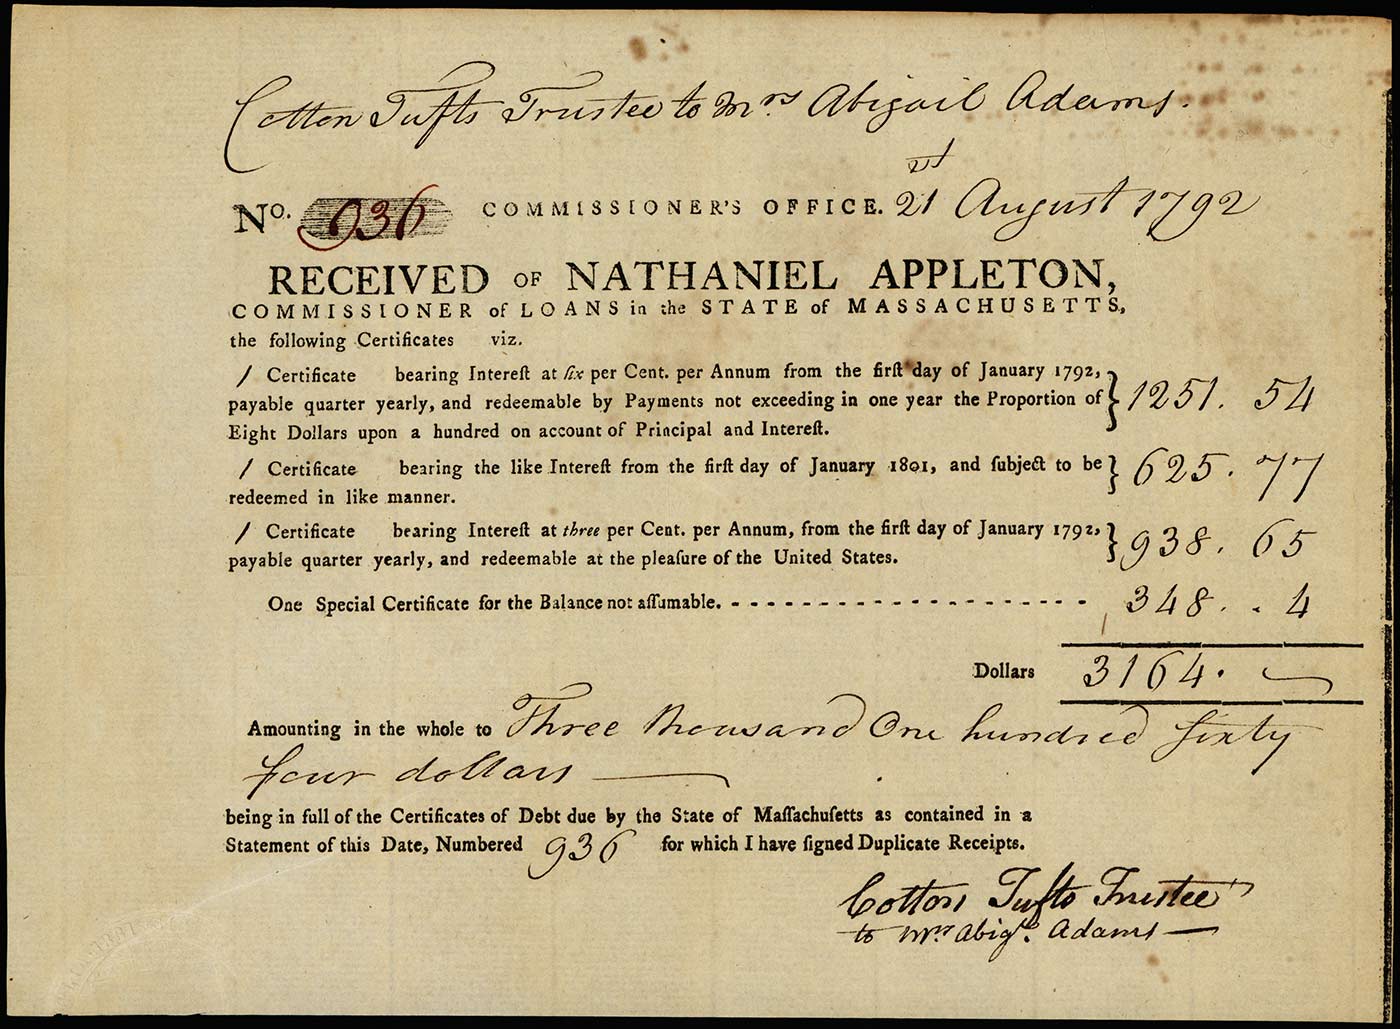 Cotton Tufts Trustee to Mrs Abigail Adams.
No. 936 COMMISSIONER'S OFFICE. 21st August 1792
RECEIVED OF NATHANIEL APPLETON,
COMMISSIONER of LOANS in the STATE of MASSACHUSETTS,
the following Certificates viz.
/ Certificate bearing Intereſt at ſix per Cent. per Annum from the firſt day of January 1792,
payable quarter yearly, and redeemable by Payments not exceeding in one year the Proportion of } 1251. 54
Eight Dollars upon a hundred on account of Principal and Intereſt.
/ Certificate bearing the like Intereſt from the firſt day of January 1801, and ſubject to be } 625. 77
redeemed in like manner.
/ Certificate bearing Intereſt at three per Cent. per Annum, from the firſt day of January 1792, } 938. 65
payable quarter yearly, and redeemable at the pleaſure of the United States.
One Special Certificate for the Balance not aſſumable. - - - - - - - - - - - - - - - - - - - - 348. . 4
Dollars 3164. —
Amounting in the whole to Three thousand One hundred sixty
four dollars —
being in full of the Certificates of Debt due by the State of Maſſachuſetts as contained in a
Statement of this Date, Numbered 936 for which I have ſigned Duplicate Receipts.
Cotton Tufts Trustee
to Mrs Abigl. Adams —